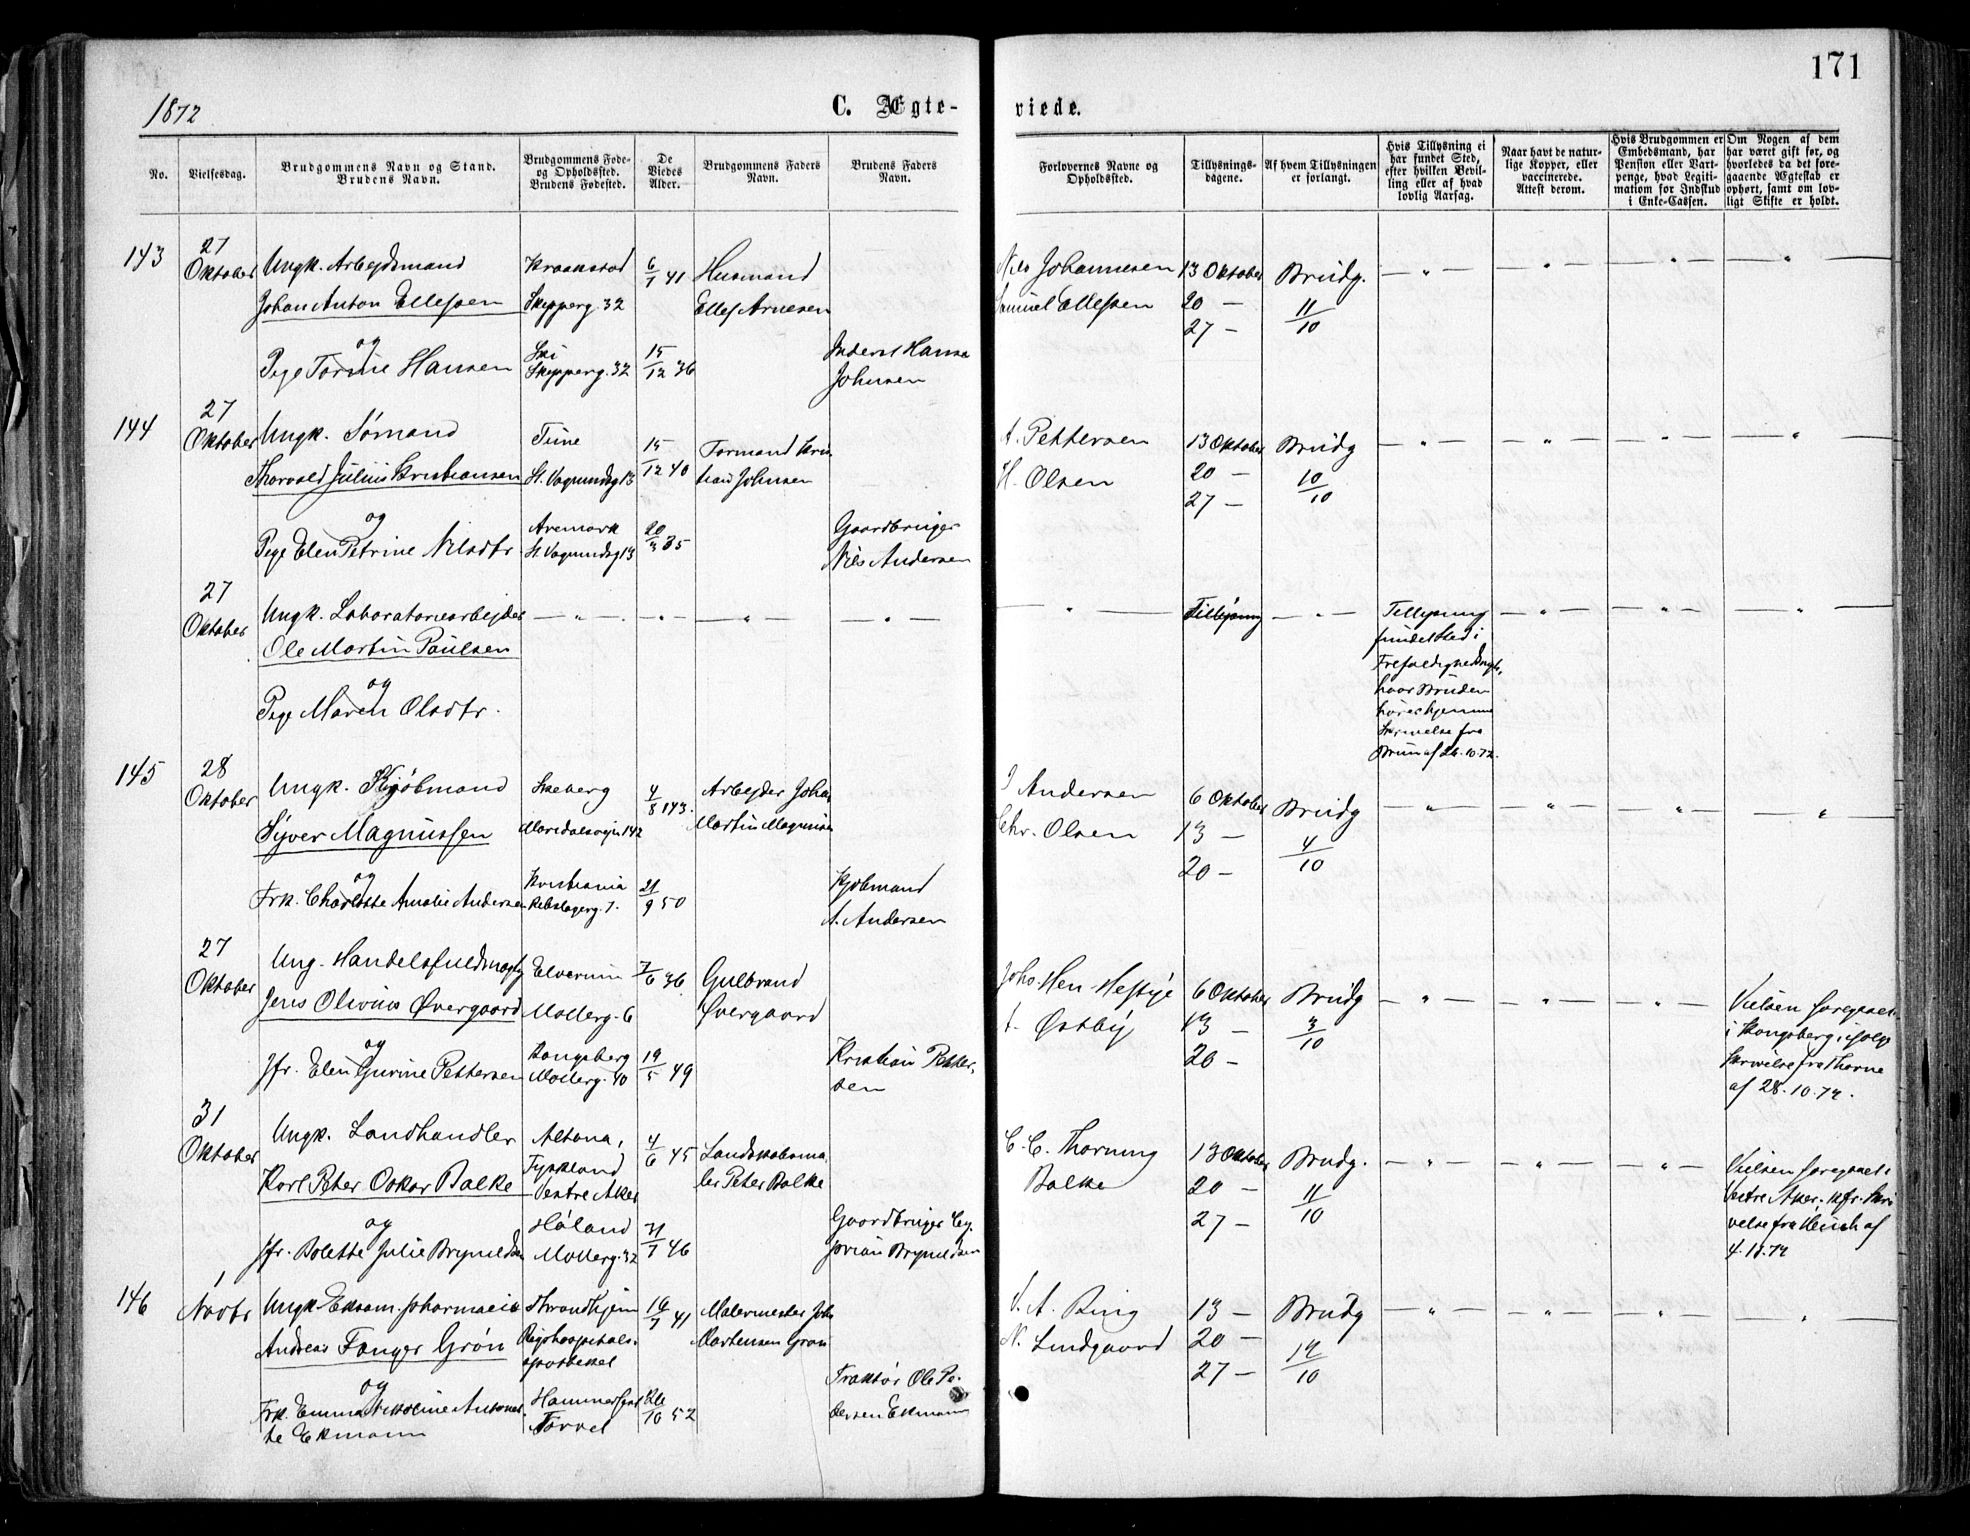 171
1872
C. Ægte-
viede.
No.
Vielsesdag.
Brudgommens Navn og Stand.
Brudens Navn.
Brudgommens Føde-
og Opholdssted.
Brudens Fødested.
De
Viedes
Alder.
Brudgommens Faders
Navn.
Brudens Faders
Navn.
Forlovernes Navne og
Opholdssted.
Tillysnings-
dagene.
Af hvem Tillysningen
er forlangt.
Hvis Tillysning ei
har fundet Sted,
efter hvilken Bevil-
ling eller af hvad
lovlig Aarsag.
Naar havt de natur-
lige Kopper, eller
vaccinerede.
Attest derom.
Hvis Brudgommen er
Embedsmand, har
Pension eller Vart-
penge, hvad Legiti-
mation for Indskud
i Enke-Cassen.
Om Nogen af dem
har været gift før, og
hvorledes da det fore-
gaaende Ægteskab er
ophørt, samt om lov-
ligt Skifte er holdt.
143
27
Oktober
Ungk. Arbejdsmand
Johan Anton Ellefsen
og
Pige Torine Hansen
Kraakstad
Skipperg. 32
Ski
Skipperg. 32
6/1 41
15/12 36
Husmand
Ellef Arnesen
Inderst Hans
Johnsen
Nils Johannesen
Samuel Ellefsen
13 Oktober
20 —
27 —
Brudg.
11/10
— " — — " — — " — — " —
144
27
Oktober
Ungk. Sømand
Thorvald Julius Kristiansen
og
Pige Elen Petrine Nilsdtr
Tune
St. Vognmdsg 13
Aremark
St. Vognmdsg 13
15/12 40
20/3 35
Formand Kris
tian Johnsen
Gaardbruger
Nils Andersen
A. Pettersen
H. Olsen
13 Oktober
20 —
27 —
Brudg
10/10
— " — — " — — " — — " —
27
Oktober
Ungk. Laboratoriearbejder
Ole Martin Paulsen
og
Pige Maren Olsdtr.
— " — — " — — " — — " —
— " —
Tillysning
— " —
Tillysning
fundet Sted i
Trefoldighedsmgh.
hvor Bruden
hører hjemme
Skrivelse fra
Bruun af 26.10.72.
— " — — " — — " —
145
28
Oktober
Ungk. Kjøbmand
Syver Magnussen
og
Frk. Charlotte Amalie Andersen
Skeberg
Maridalsvejn 142
Kristiania
Rebslagerg. 7.
4/8 43.
21/9 50
Arbejder Johan
Martin Magnusen
Kjøbmand
A. Andersen
J Andersen
Chr. Olsen
6 Oktober
13 —
20 —
Brudg
4/10
— " — — " — — " — — " —
27
Oktober
Ung. Handelsfuldmægtg
Jens Olivius Øvergaard
og
Jfr. Elen Gurine Pettersen
Elverum
Mollerg. 6
Kongsberg
Mollerg. 40
7/6 36
19/5 49
Gulbrand
Øvergaard
Kristian Petter-
sen
Johs. Hen Hestye
A. Østby
6 Oktober
13 —
20 —
Brudg
3/10
— " — — " — — " —
Vielsen foregaaet
i Kongsberg ifølge
Skrivelse fra Thorne
af 28.10.72.
31
Oktober
Ungk. Landhandler
Karl Peter Oskar Balke
og
Jfr. Bolette Julie Brynildsen
Altona,
Tyskland
Vestre Aker
Høland
Mollerg. 32
4/6 45
31/7 46
Landskabsma
ler Peter Balke
Gaardbruger
Brynildsen
C. C. Thorning
Balke
13 Oktober
20 —
27 —
Brudg.
11/10
— " — — " — — " —
Vielsen foregaaet i
Vestre Aker. kfr. Skri
velse fra Heuch af
4.11.72
146
1
Novbr
Ungk. Eksam. pharmaceut
Andreas Fanger Grøn
og
Frk. Emma Nikoline Antonet-
te Ekmann
Throndhjem
Rigshospitals-
apotheket
Hammerfest
Torvet
16/7 41
26/10 52
Malermester Joh
Martensen Grøn
Traktør Ole Pe-
dersen Ekmann
A. Ring
N. Lindgaard
13 —
20 —
27 —
Brudg
12/10
— " — — " — — " — — " —